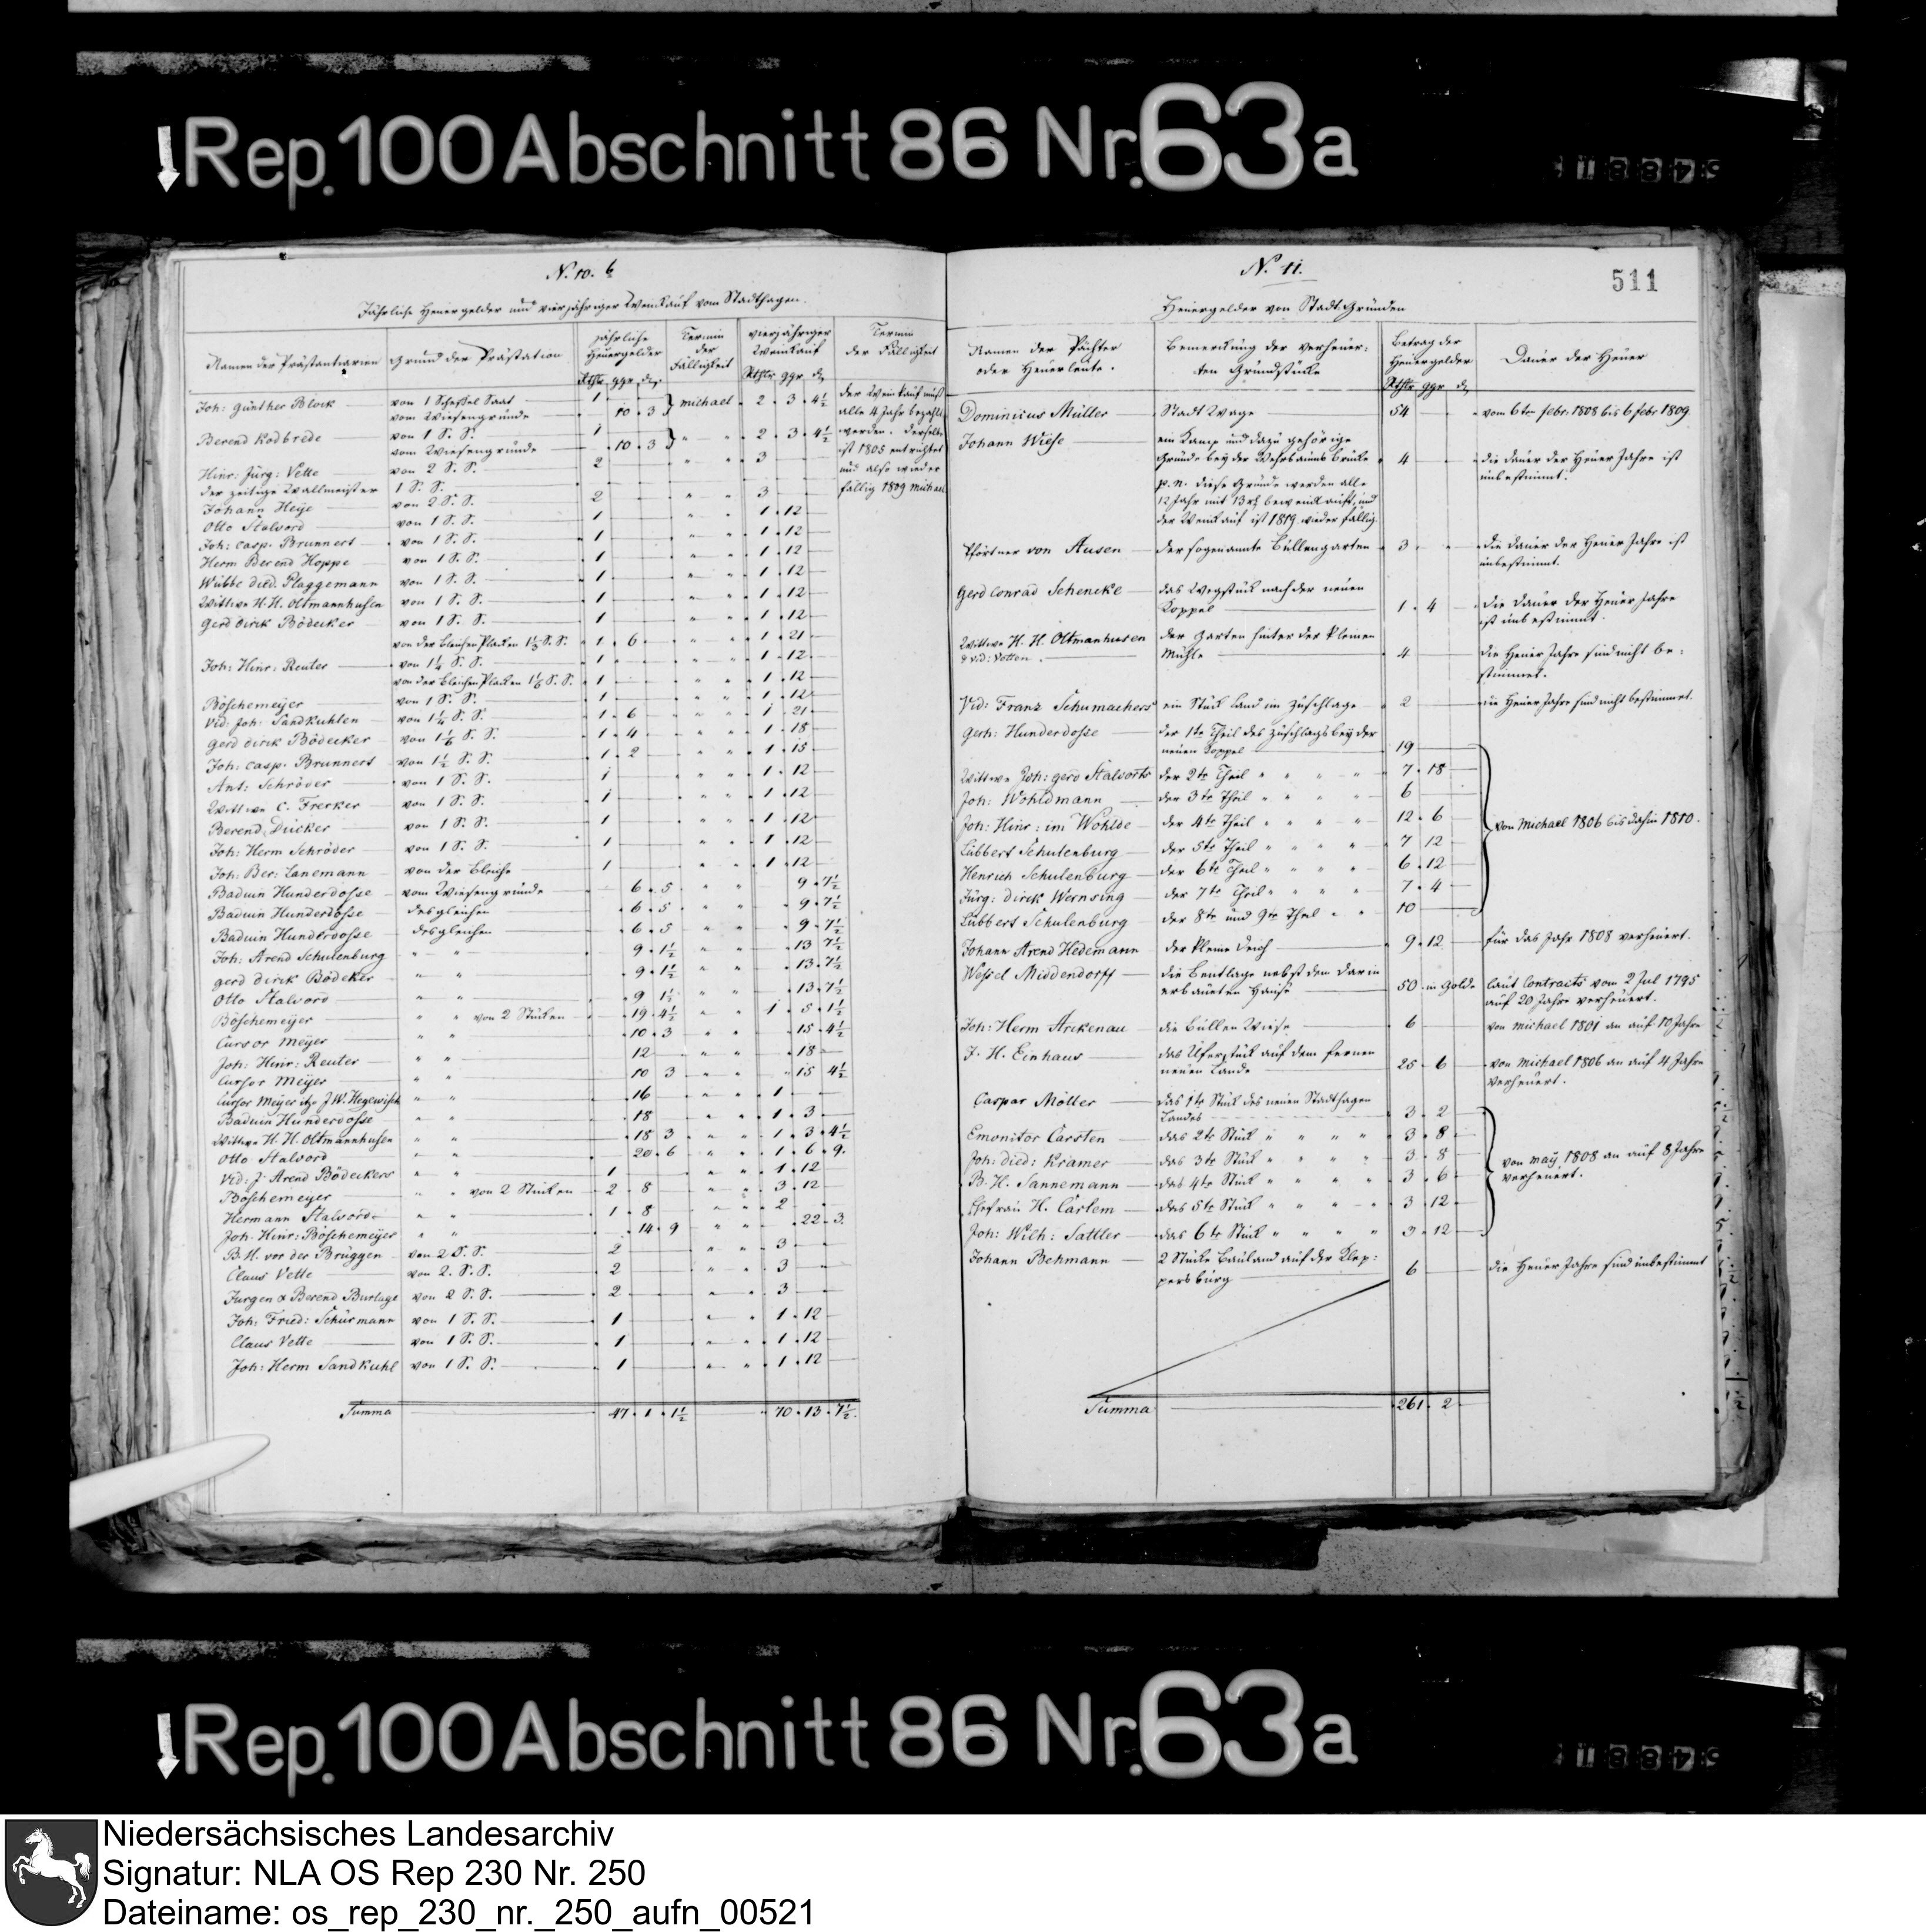 Rep. 100 Abschnitt 86 Nr. 63a
N. 10. b
Jährliche Heuergelder und vierjähriger Weinkauf vom Stadthagen.
Namen der Prästantiarien | Grund der Prästation | jährliche Heuergelder | Termin der Fälligkeit | vierjähriger Weinkauf | Termin der Fälligkeit
Rthlr ggr. d. | Rthlr ggr d.
Joh: Günther Block von 1 Scheffel Saat 1 michael 2 . 3 . 4½ der Weinkauf muß
vom Wiesengrunde 10 . 3 alle 4 Jahr bezahlt
Berend Kodbrede von 1 S. S. 1 " " 2 . 3 . 4½ werden. derselbe
vom Wiesengrunde 10 . 3 ist 1805 entrichtet
Hinr: Jürg: Vette von 2 S. S. 2 " " 3 und also wieder
der zeitige Wallmeister 1 S. S. fällig 1809 Michael
Johann Heye von 2 S. S. 2 " " 3
Otto Stalvord von 1 S. S. 1 " " 1 . 12
Joh: Casp. Brunnert von 1 S. S. 1 " " 1 . 12
Herm Berend Hoppe von 1 S. S. 1 " " 1 . 12
Wübbe died. Plaggemann von 1 S. S. 1 " " 1 . 12
Wittwe H. H. Oltmannhusen von 1 S. S. 1 " " 1 . 12
Gerd dirk Bödecker von 1 S. S. 1 " " 1 . 12
von der Bleichen Placken 1⅓ S. S. 1 . 6 " " 1 . 21
Joh: Hinr: Reuter von 1¼ S. S. 1 " " 1 . 12
von der Bleichen Placken 1⅙ S. S. 1 " " 1 . 12
Böschemeyer von 1 S. S. 1 " " 1 . 12
Vid: Joh: Sandkuhlen von 1¼ S. S. 1 . 6 " " 1 . 21
Gerd dirk Bödecker von 1⅙ S. S. 1 . 4 " " 1 . 18
Joh: Casp: Brunnert von 1½ S. S. 1 . 2 " " 1 . 15
Ant: Schröder von 1 S. S. 1 " " 1 . 12
Wittwe C. Frerker von 1 S. S. 1 " " 1 . 12
Berend Dücker von 1 S. S. 1 " " 1 . 12
Joh: Herm Schröder von 1 S. S. 1 " " 1 . 12
Joh: Ber: Lanemann von der Bleiche 1 " " 1 . 12
Baduin Hunderdosse vom Wiesengrunde 6 . 5 " " 9 . 7½
Baduin Hunderdosse desgleichen 6 . 5 " " 9 . 7½
Baduin Hunderdosse desgleichen 6 . 5 " " 9 . 7½
Joh: Arend Schulenburg " " 9 . 1½ " " 13 7½
gerd dirck Bödeker " " 9 . 1½ " " 13 . 7½
Otto Stalvord " " 9 1½ " " 13 . 7½
Böschemeyer " " von 2 Stücken 19 . 4½ " " 1 . 5 . 1½
Cursor Meyer " " 10 . 3 " " 15 . 4½
Joh: Hinr: Reuter " " 12 " " 18
Cursor Meyer " " 10 3 " " 15 4½
Cursor Meyer itzo J. W. Hegewisch " " 16 " " 1
Baduin Hunderdosse " " 18 " " 1 . 3
Wittwe H. H. Oltmannhusen " " 18 3 " " 1 . 3 . 4½
Otto Stalvord " " 20 . 6 " " 1 . 6 . 9.
Vid: J: Arend Bödeckers " " 1 " " 1 . 12
Böschemeyer " " von 2 Stücken 2 . 8 " " 3 . 12
Hermann Stalvord " " 1 . 8 " " 2
Joh. Hinr: Böschemeyer " " 14 . 9 " " 22 . 3.
B. H. vor der Brüggen von 2 S. S. 2 " " 3
Claus Vette von 2. S. S. 2 " " 3
Jurgen & Berend Burlage von 2 S. S. 2 " " 3
Joh: Fried: Schürmann von 1 S. S. 1 " " 1 . 12
Claus Vette von 1 S. S. 1 " " 1 . 12
Joh: Herm Sandkuhl von 1 S. S. 1 " " 1 . 12
Summa 47 . 1 . 1½ 70 . 13 . 7½.
N. 11.
511
Heuergelder von Stadt Gründen
Namen der Pächter oder Heuerleute. | Bemerkung der verheuer: ten Grundstücke | Betrag der Heuergelder | Dauer der Heuer
Rthlr ggr d.
Dominicus Müller Stadt Wage 54 vom 6ten febr. 1808 bis 6 febr 1809.
Johann Wiese ein Kamp und dazu gehörige
Gründe bey der Wehrbaums Brücke 4 die dauer der Heuer Jahre ist
p. n. diese Gründe werden alle unbestimmt.
12 Jahr mit 13 rt beweinkauft, und
der Weinkauf ist 1819. wieder fällig.
Pförtner von Ausen der sogenannte Büllengarten 3 die dauer der Heuer Jahre ist
unbestimmt.
Gerd Conrad Schencke das Wegstück nach der neuen
Koppel 1 . 4 die dauer der Heuer Jahre
ist unbestimmt.
Wittwe H. H. Oltmanhusen der Garten hinter der kleinen
& vid: Votten. Mühle 4 die Heuer Jahre sind nicht be:
stimmet.
Vid: Franz Schumachers ein Stück Land im Zuschlage 2 die Heuer Jahre sind nicht bestimmet.
Gerh: Hunderdosse der 1te Theil des Zuschlags bey der
neuen Koppel 19
Wittwe Joh: gerd Stalvorts der 2te Theil " " " " 7 . 18
Joh: Wohldmann der 3te Theil " " " " 6
Joh: Hinr: im Wohlde der 4te Theil " " " " 12 . 6 von Michael 1806 bis dahin 1810.
Lübbert Schulenburg der 5te Theil " " " " 7 12
Henrich Schulenburg der 6te Theil " " " " 6 . 12
Jürg: dirck Wernsing der 7te Theil " " " " 7 . 4
Lübbert Schulenburg der 8te und 9te Theil " " 10
Johann Arend Hedemann der kleine Deich 9 . 12 für das Jahr 1808 verheuert.
Wessel Middendorff die Bentlage nebst dem darin
erbaueten Hause 50 in Golde laut Contracts vom 2 Jul 1795
auf 20 Jahre verheuert.
Joh: Herm Arckenau die Büllen Wiese 6 von michael 1801 an auf 10 Jahre
J. H. Einhaus das Uferstück auf dem fernen
neuen Lande 25 . 6 von Michael 1806 an auf 4 Jahre
verheuert.
Caspar Möller das 1te Stück des neuen Stadthagen
Landes 3 . 2
Emonitor Carsten das 2te Stück " " " " 3 . 8
Joh: died: Kramer das 3te Stück " " " " 3 . 8 von may 1808 an auf 8 Jahre
B. H. Sannemann das 4te Stück " " " " 3 . 6 verheuert.
Ehefrau H. Carlem das 5te Stück " " " " 3 . 12
Joh: Wilh: Sattler das 6te Stück " " " " 3 . 12
Johann Behmann 2 Stücke Bauland auf der Klep:
persburg 6 die Heuer Jahre sind unbestimmt
Summa 261 . 2
Rep. 100 Abschnitt 86 Nr. 63a
Niedersächsisches Landesarchiv
Signatur: NLA OS Rep 230 Nr. 250
Dateiname: os_rep_230_nr._250_aufn_00521